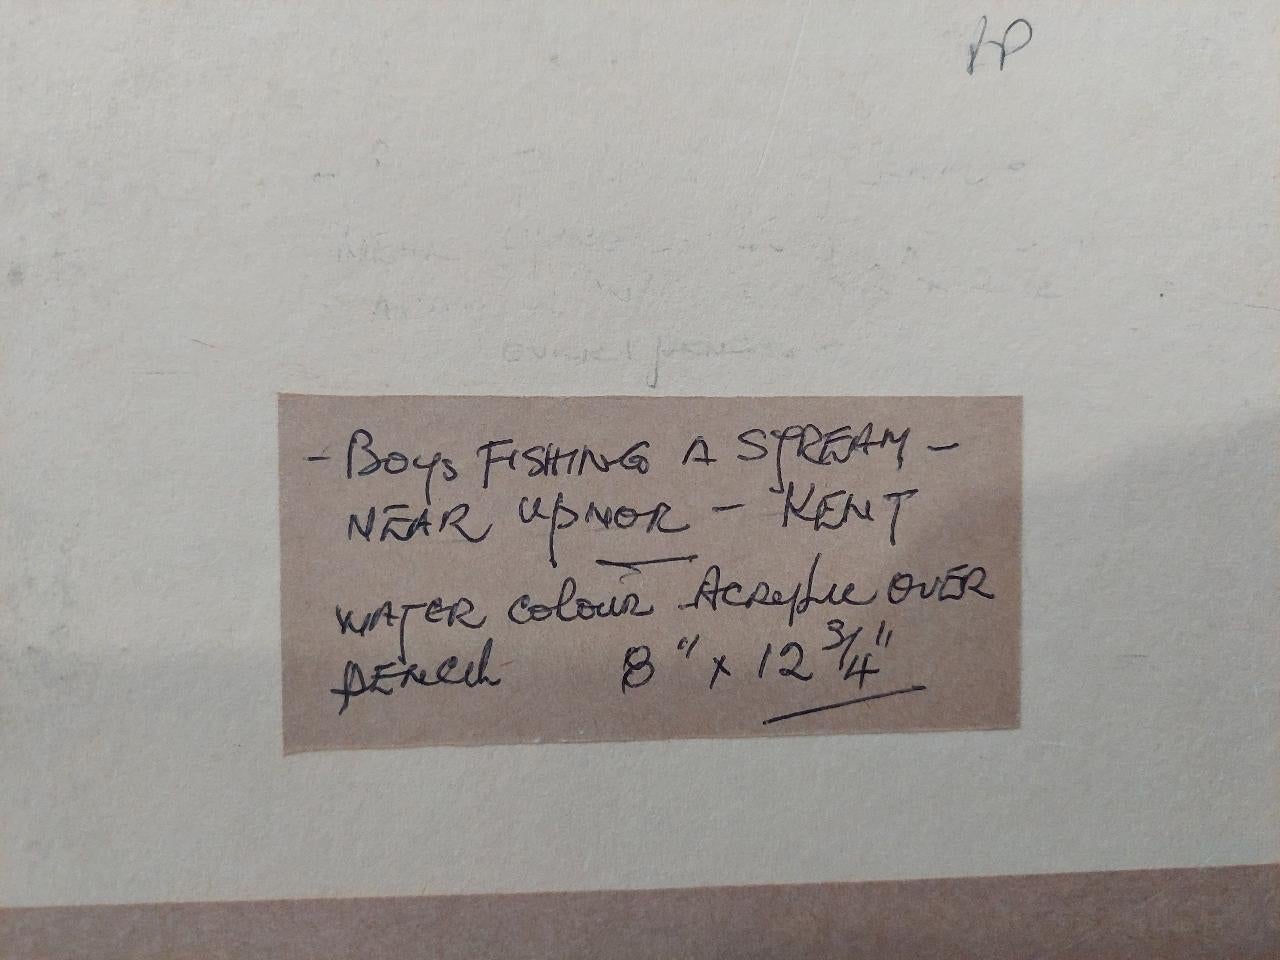 - Boys FISHING A STREAM -
NEAR UPNOR - KENT
WATER COLOUR ACRYLIC OVER
PENCIL 8" x 12 3/4"